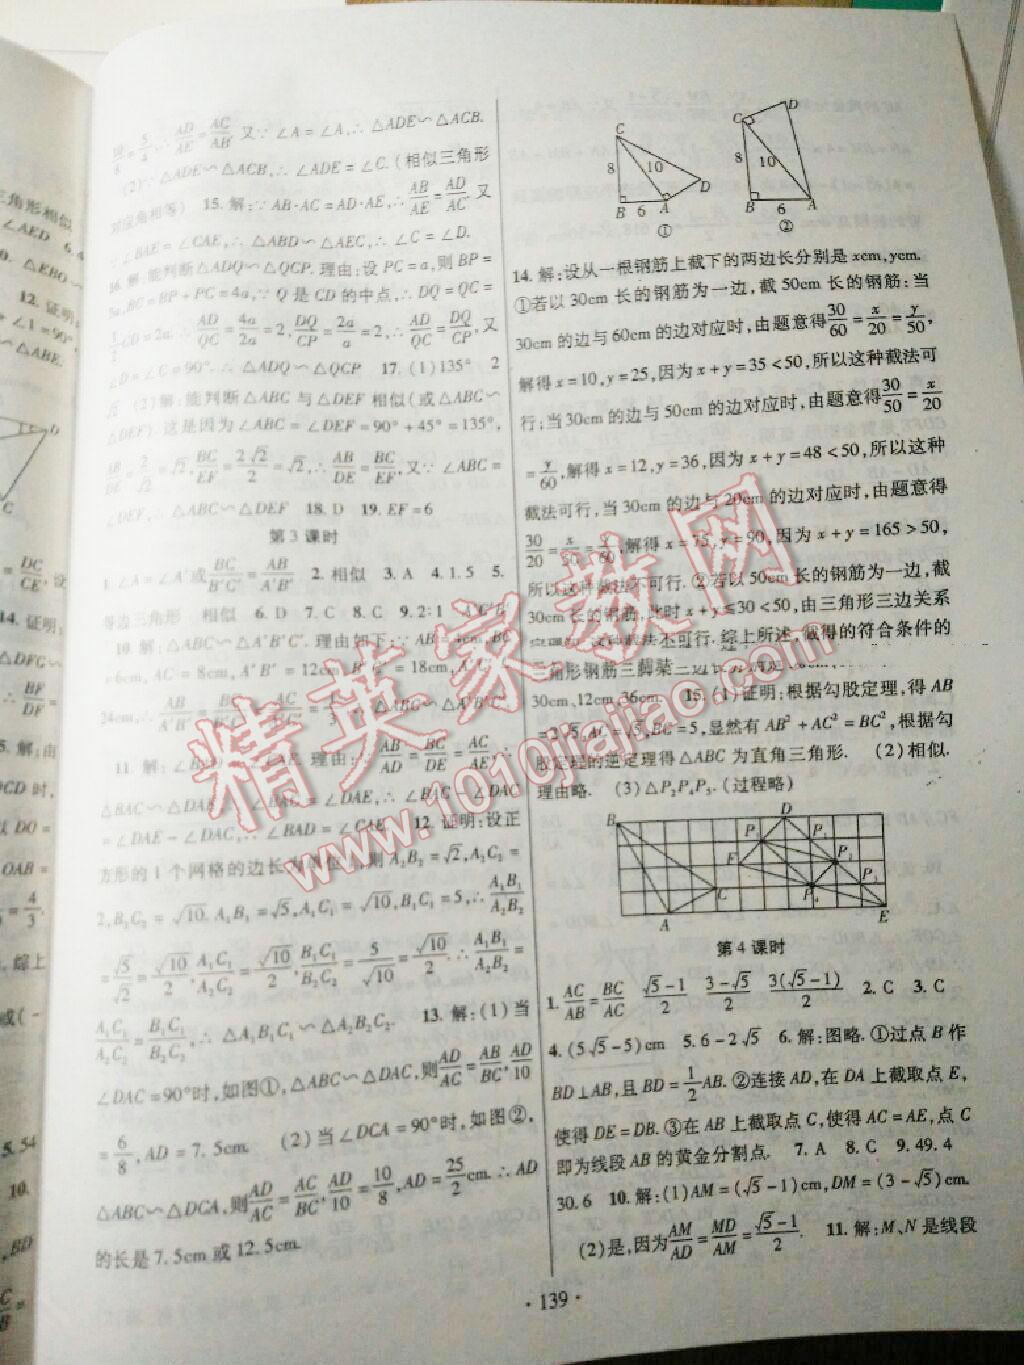 10/8=5/4,∴AD/AE=AC/AB,又∵∠A=∠A,∴△ADE∽△ACB.
(2)∵△ADE∽△ACB,∴∠ADE=∠C.(相似三角形
对应角相等) 15.解:∵AB·AC=AD·AE,∴AB/AE=AD/AC.又
∵∠BAE=∠CAE,∴△ABD∽△AEC,∴∠C=∠D.
16.解:能判断△ADQ∽△QCP.理由:设PC=a,则BP=
3a,BC=BP+PC=4a,∵Q是CD的中点,∴DQ=QC=
1/2CD=2a.∴AD/QC=4a/2a=2,DQ/CP=2a/a=2,∴AD/QC=DQ/CP,又
∠D=∠C=90°.∴△ADQ∽△QCP 17.(1)135° 2
√2 (2)解:能判断△ABC与△DEF相似(或△ABC∽
△DEF).这是因为∠ABC=∠DEF=90°+45°=135°,
AB/DE=2/√2=√2,BC/EF=2√2/2=√2,∴AB/DE=BC/EF,又∵∠ABC=
∠DEF,∴△ABC∽△DEF 18.D 19.EF=6
第3课时
1.∠A=∠A′或BC/B′C′=AB/A′B′ 2.相似 3.A 4.1.5 5.
等边三角形 相似 6.D 7.C 8.C 9.2:1 A′C′B′
10.解:△ABC∽△A′B′C′.理由如下:∵AB=4cm,BC
=6cm,AC=8cm,A′B′=12cm,B′C′=18cm,A′C′=
24cm,∴AB/A′B′=BC/B′C′=AC/A′C′=1/3,∴△ABC∽△A′B′C′.
11.解:∠BAD=∠CAE.理由:∵AB/AD=BC/DE=AC/AE,∴
△BAC∽△DAE,∴∠BAC=∠DAE,∴∠BAC-∠DAC
=∠DAE-∠DAC,∴∠BAD=∠CAE. 12.证明:设正
方形的1个网格的边长为单位1,则A₂B₂=√2,A₂C₂=
2,B₂C₂=√10.A₁B₁=√5,A₁C₁=√10,B₁C₁=5,∴A₁B₁/A₂B₂
=√5/√2=√10/2,A₁C₁/A₂C₂=√10/2,B₁C₁/B₂C₂=5/√10=√10/2.∴A₁B₁/A₂B₂=
A₁C₁/A₂C₂=B₁C₁/B₂C₂,∴△A₁B₁C₁∽△A₂B₂C₂. 13.解:(1)当
∠DAC=90°时,如图①,△ABC∽△DAC,则AD/AC=AB/BC,AD/10
=6/8,AD=7.5cm. (2)当∠DCA=90°时,如图②,
△ABC∽△DCA,则AD/AC=AC/BC,AD/10=10/8,AD=25/2cm.∴AD
的长是7.5cm或12.5cm.
C D 8 10 B 6 A ①
C D 8 10 B 6 A ②
14.解:设从一根钢筋上截下的两边长分别是xcm,ycm.
①若以30cm长的钢筋为一边,截50cm长的钢筋:当
30cm的边与60cm的边对应时,由题意得30/60=x/20=y/50,
解得x=10,y=25,因为x+y=35<50,所以这种截法可
行;当30cm的边与50cm的边对应时,由题意得30/50=x/20
=y/60,解得x=12,y=36,因为x+y=48<50,所以这种
截法可行,当30cm的边与20cm的边对应时,由题意得
30/20=x/50=y/60,解得x=75,y=90,因为x+y=165>50,
所以这种截法不可行.②若以50cm长的钢筋为一边,截
30cm长的钢筋,此时x+y≤30<50,由三角形三边关系
这种截法不可行.综上所述,截得的符合条件的
三角形钢筋三
30cm,12cm,36cm. 15.(1)证明:根据勾股定理,得AB
=2√5,AC=√5,BC=5,显然有AB²+AC²=BC²,根据勾
股定理的逆定理得△ABC为直角三角形. (2)相似.
理由略. (3)△P₂P₄P₅.(过程略)
B D P₁ P₂ F P₃ C P₄ A E
第4课时
1.AC/AB=BC/AC √5-1/2 3-√5/2 3(√5-1)/2 2.C 3.C
4.(5√5-5)cm 5.6-2√5 6.解:图略.①过点B作
BD⊥AB,且BD=1/2AB.②连接AD,在DA上截取点E,
使得DE=DB.③在AB上截取点C,使得AC=AE,点C
即为线段AB的黄金分割点. 7.A 8.C 9.49.4
30.6 10.解:(1)AM=(√5-1)cm,DM=(3-√5)cm.
(2)是,因为AM/AD=MD/AM=√5-1/2. 11.解:M、N是线段
·139·
精英家教网
www.1010jiajiao.com